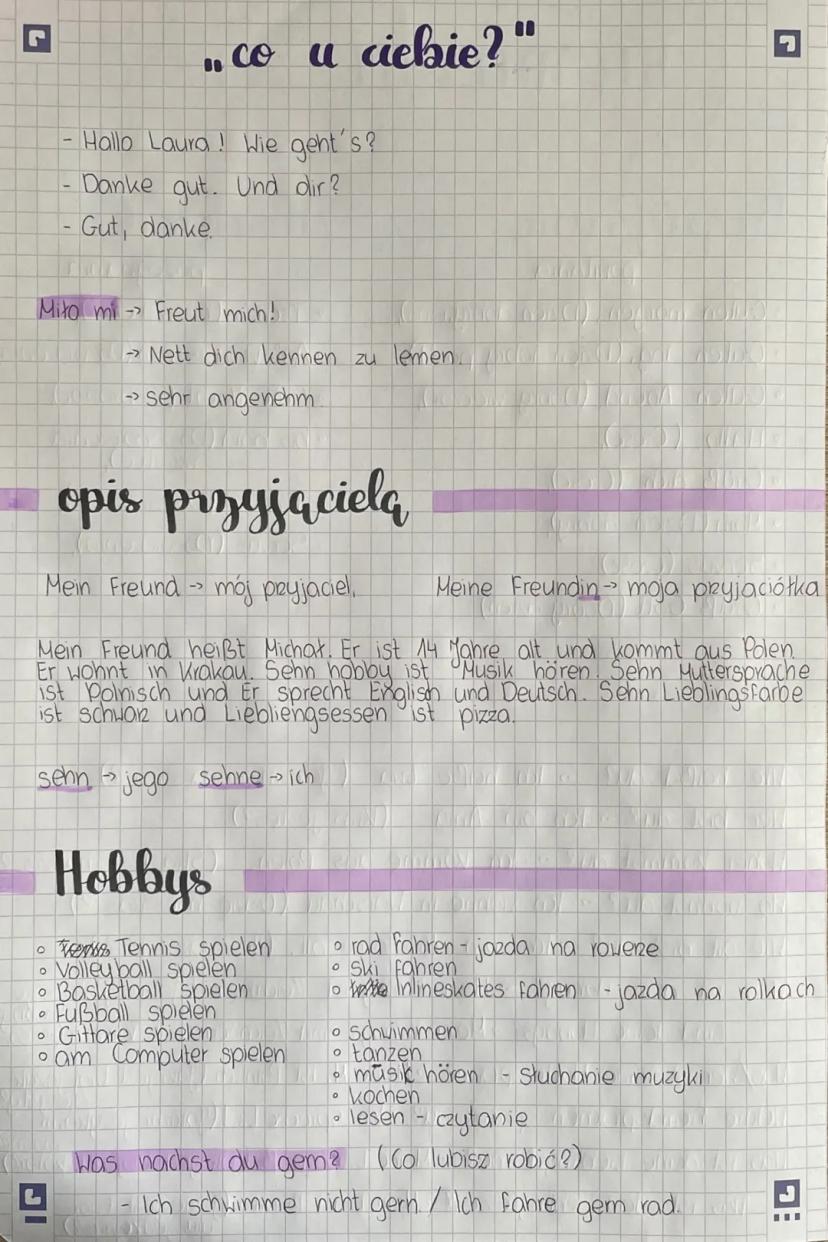 „co u ciebie?"
- Hallo Laura! Wie geht's?
- Danke gut. Und dir?
- Gut, danke.
Miło mi → Freut mich!
→ Nett dich kennen zu lernen.
→ sehr angenehm
opis przyjącielą
Mein Freund → mój przyjaciel, Meine Freundin → moja przyjaciółka
Mein Freund heißt Michał. Er ist 14 Jahre alt und kommt aus Polen.
Er wohnt in Krakau. Sehn hobby ist Musik hören. Sehn Muttersprache
ist Polnisch und Er sprecht Englisch und Deutsch. Sehn Lieblingsfarbe
ist schwarz und Liebliengsessen ist pizza.
sehn → jego sehne → ich
Hobbys
◦ Tennis spielen ◦ rad fahren - jazda na rowerze
◦ Volleyball spielen ◦ ski fahren
◦ Basketball spielen ◦ Inlineskates fahren - jazda na rolkach
◦ Fußball spielen
◦ Gittare spielen ◦ schwimmen
◦ am Computer spielen ◦ tanzen
◦ musik hören - słuchanie muzyki
◦ kochen
◦ lesen - czytanie
Was nachst du gern? (Co lubisz robić?)
- Ich schwimme nicht gern / Ich fahre gern rad.